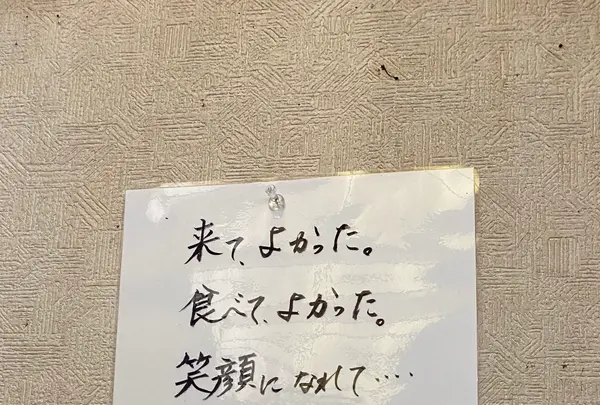 来て、よかった。
食べて、よかった。
笑顔になれて‥‥